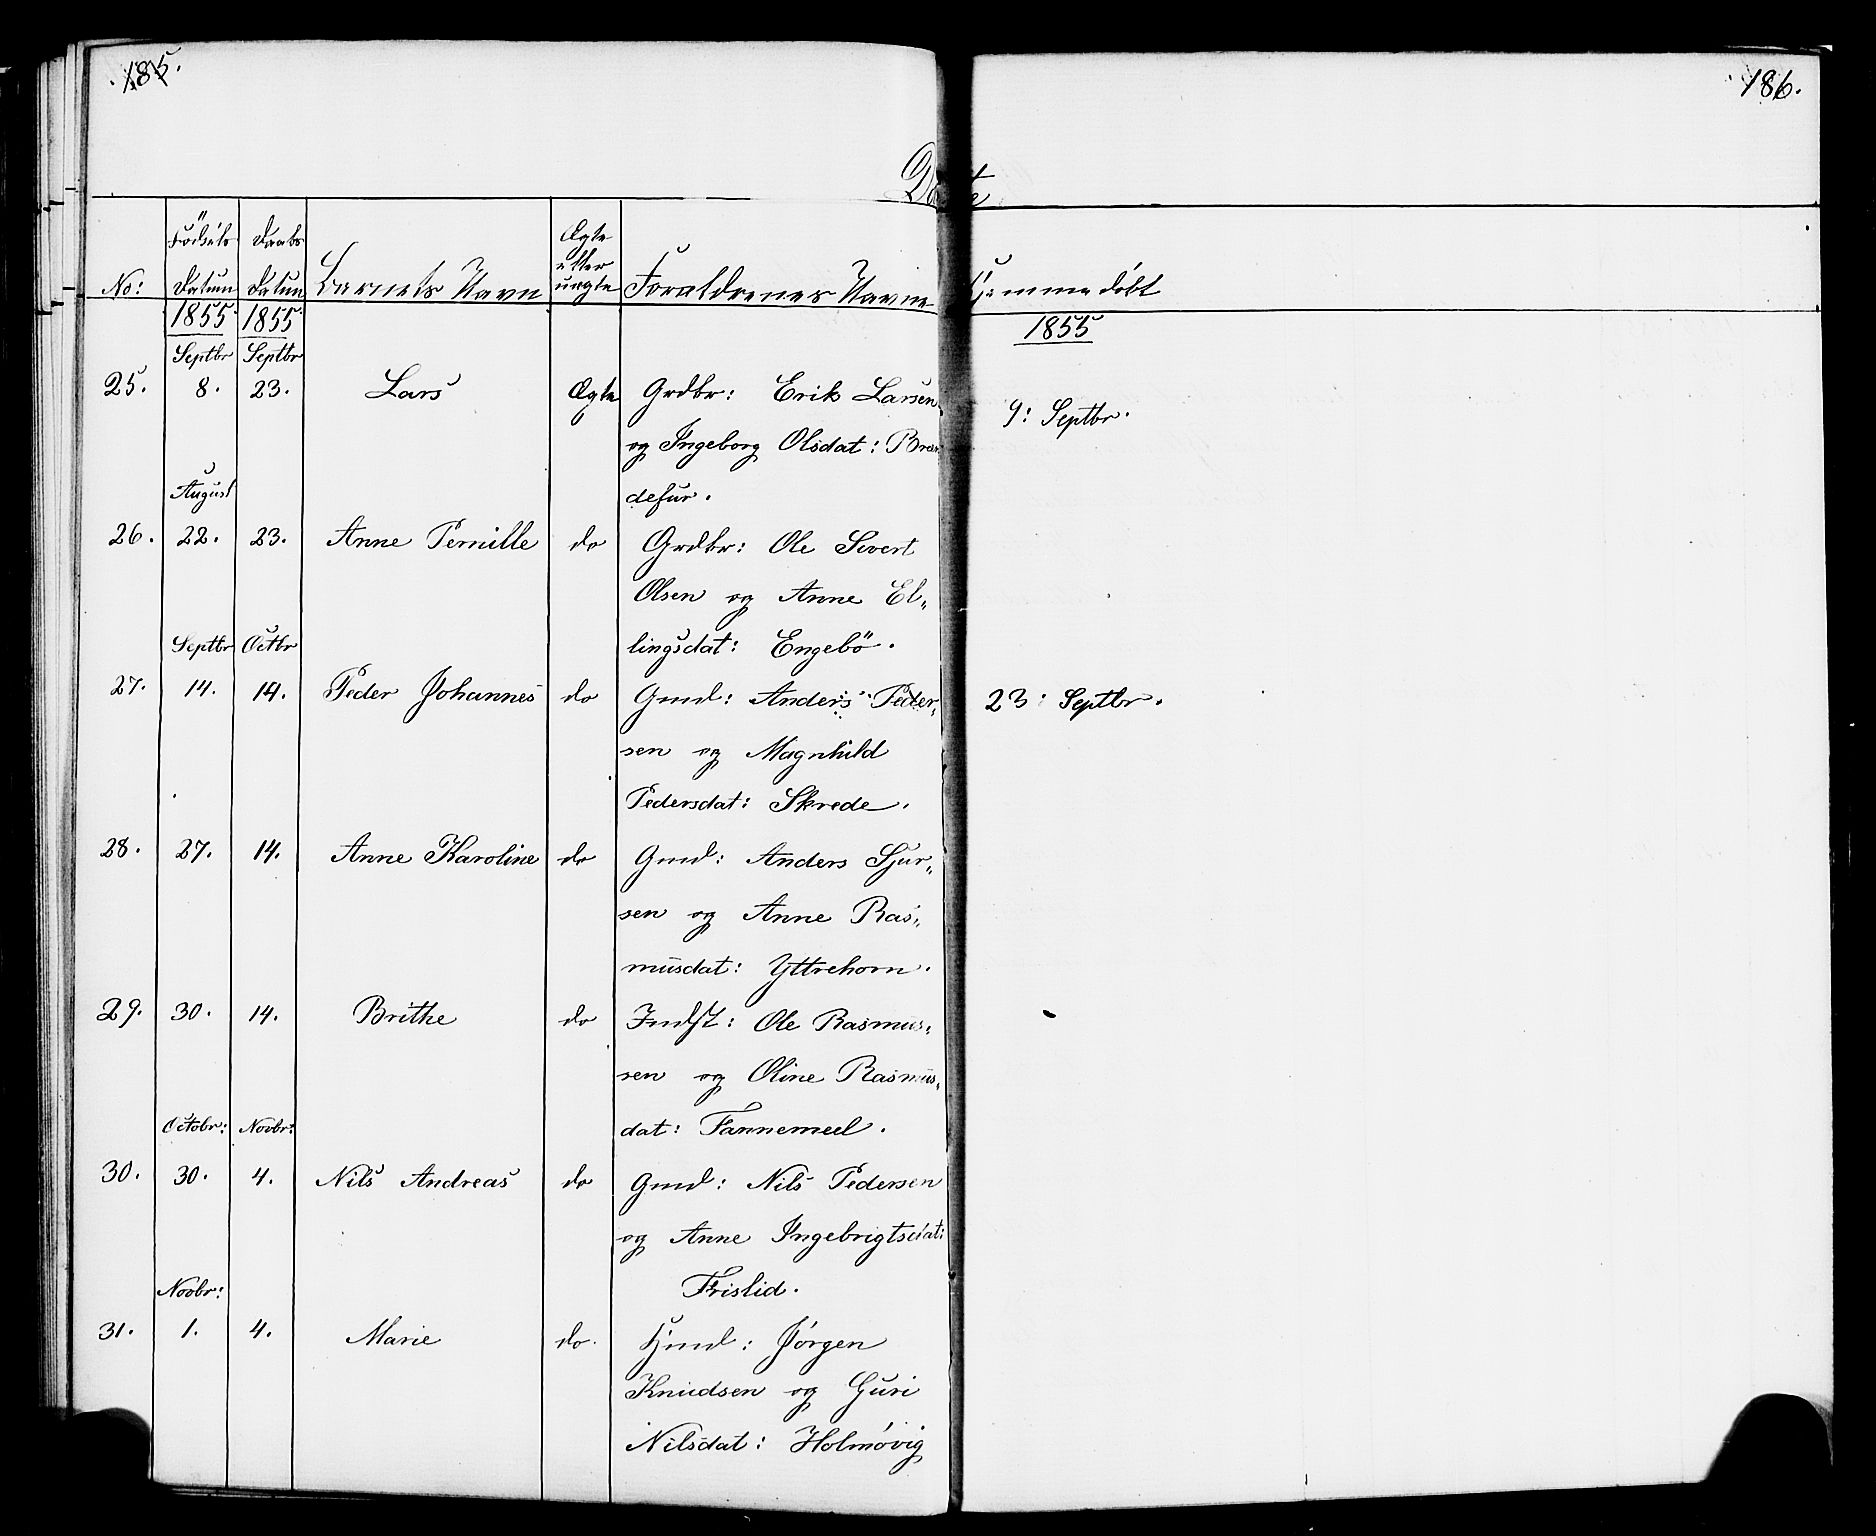 185.
186.
Døbte
No: Födsels Datum Daabs Datum Barnets Navn Ægte eller uægte Forældrenes Navne Hjemmedøbt
1855 1855 1855
Septbr Septbr
25. 8. 23. Lars Ægte Grdbr: Erik Larsen 9: Septbr.
og Ingeborg Olsdat:
August defur.
26. 22. 23. Anne Pernille do Grdbr: Ole Sivert
Olsen og Anne El„
Septbr Octbr lingsdat: Engebö.
27. 14. 14. Peder Johannes do Gmd: Anders Peder„ 23: Septbr.
sen og Magnhild
Pedersdat: Skrede.
28. 27. 14. Anne Karoline do Gmd: Anders Sjur„
sen og Anne Ras„
musdat: Yttrehorn.
29. 30. 14. Brithe do Indst: Ole Rasmus„
sen og Oline Rasmus„
Octobr: Novbr: dat: Fannemeel.
30. 30. 4. Nils Andreas do Gmd: Nils Pedersen
og Anne Ingebrigtsdat:
Novbr: Frislid.
31. 1. 4. Marie do. Hjmd: Jörgen
Knudsen og Guri
Nilsdat: Holmøvig